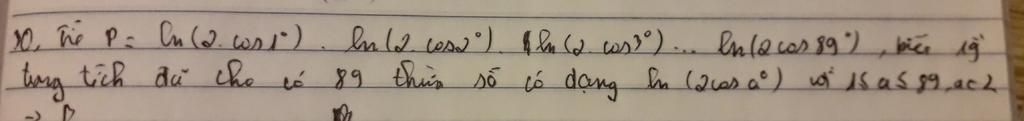 30, Tìm P = ln(2.cos1°) . ln(2.cos2°) . ln(2.cos3°) ... ln(2cos89°), biết rg
trong tích đã cho có 89 thừa số có dạng ln(2cosa°) với 1≤a≤89, a∈Z
→ P